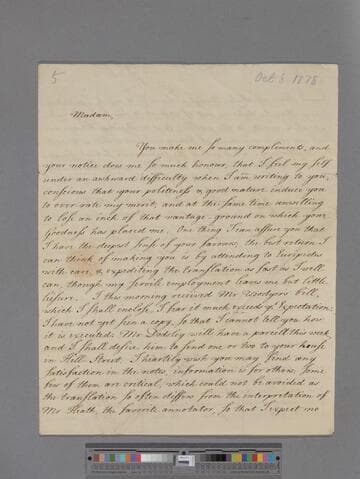 5
Oct 6 1778
Madam,
You make me so many complements, and
your notice does me so much honour, that I feel my self
under an awkward difficulty when I am writing to you,
conscious that your politeness & good nature induce you
to over rate my merit, and at the same time unwilling
to lose an inch of that vantage-ground on which your
Goodness has placed me. One thing I can assure you that
I have the deepest sense of your favours, the best return I
can think of making you is by attending to Euripides
with care, & expediting the translation as fast as I well
can, though my servile employment leaves me but little
leisure. I this morning received Mr Woodyers bill,
which I shall inclose. I fear it much exceeds yr Expectation:
I have not yet seen a copy, so that I cannot tell you how
it is executed. Mr Dodsley will have a parcell this week
and I shall desire him to send one or two to your house
in Hill Street. I heartely wish you may find any
satisfaction in the notes, information is for others. Some
few of them are critical, which could not be avoided as
the translation so often differs from the interpretation of
Mr Heath, the favorite annotator, so that I expect no